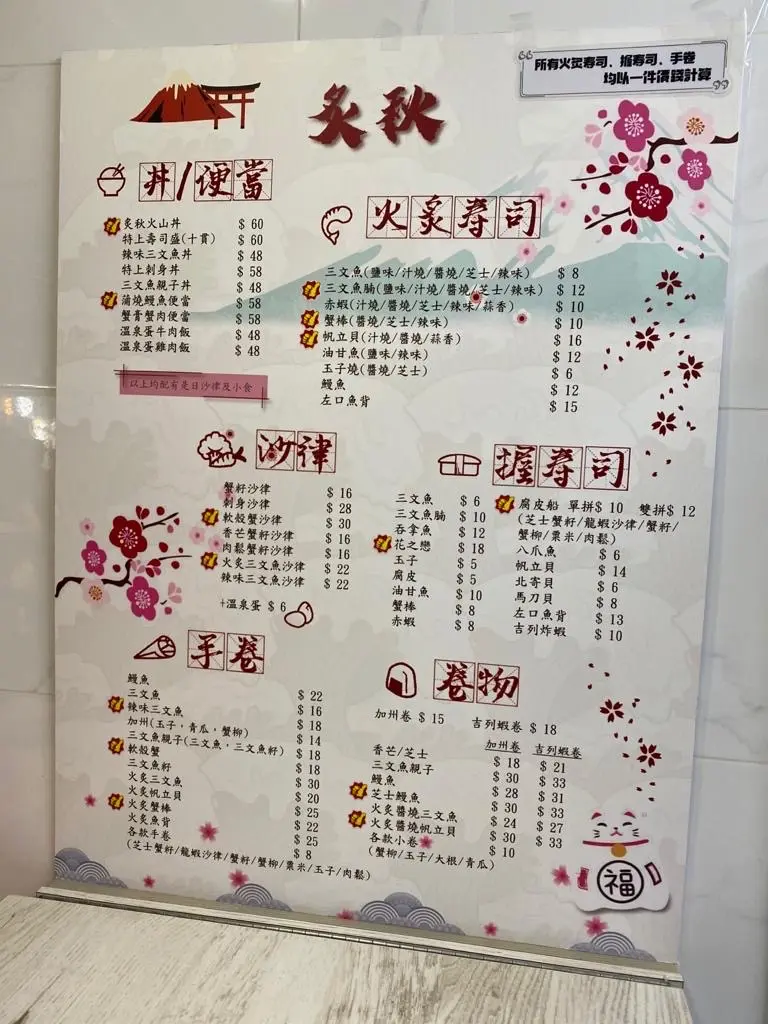 所有火炙壽司、握壽司、手卷
均以一件價錢計算
炙秋
丼/便當
炙秋火山丼 $ 60
特上壽司盛(十貫) $ 60
辣味三文魚丼 $ 48
特上刺身丼 $ 58
三文魚親子丼 $ 48
蒲燒鰻魚便當 $ 58
蟹膏蟹肉便當 $ 58
溫泉蛋牛肉飯 $ 48
溫泉蛋雞肉飯 $ 48
以上均配有是日沙律及小食
火炙寿司
三文魚(鹽味/汁燒/醬燒/芝士/辣味) $ 8
三文魚腩(鹽味/汁燒/醬燒/芝士/辣味) $ 12
赤蝦(汁燒/醬燒/芝士/辣味/蒜香) $ 10
蟹棒(醬燒/芝士/辣味) $ 10
帆立貝(汁燒/醬燒/蒜香) $ 16
油甘魚(鹽味/辣味) $ 12
玉子燒(醬燒/芝士) $ 6
鰻魚 $ 12
左口魚背 $ 15
沙律
蟹籽沙律 $ 16
刺身沙律 $ 28
軟殼蟹沙律 $ 30
香芒蟹籽沙律 $ 16
肉鬆蟹籽沙律 $ 16
火炙三文魚沙律 $ 22
辣味三文魚沙律 $ 22
+溫泉蛋 $ 6
握寿司
三文魚 $ 6
三文魚腩 $ 10
吞拿魚 $ 12
花之戀 $ 18
玉子 $ 5
腐皮 $ 5
油甘魚 $ 10
蟹棒 $ 8
赤蝦 $ 8
腐皮船 單拼$ 10 雙拼$ 12
(芝士蟹籽/龍蝦沙律/蟹籽/
蟹柳/粟米/肉鬆)
八爪魚 $ 6
帆立貝 $ 14
北寄貝 $ 6
馬刀貝 $ 8
左口魚背 $ 13
吉列炸蝦 $ 10
手卷
鰻魚 $ 22
三文魚 $ 16
辣味三文魚 $ 18
加州(玉子,青瓜,蟹柳) $ 14
三文魚親子(三文魚,三文魚籽) $ 18
軟殼蟹 $ 18
三文魚籽 $ 30
火炙三文魚 $ 20
火炙帆立貝 $ 25
火炙蟹棒 $ 22
火炙魚背 $ 25
各款手卷 $ 8
(芝士蟹籽/龍蝦沙律/蟹籽/蟹柳/粟米/玉子/肉鬆)
卷物
加州卷 $ 15 吉列蝦卷 $ 18
加州卷 吉列蝦卷
香芒/芝士 $ 18 $ 21
三文魚親子 $ 30 $ 33
鰻魚 $ 28 $ 31
芝士鰻魚 $ 30 $ 33
火炙醬燒三文魚 $ 24 $ 27
火炙醬燒帆立貝 $ 30 $ 33
各款小卷 $ 10
(蟹柳/玉子/大根/青瓜)
福